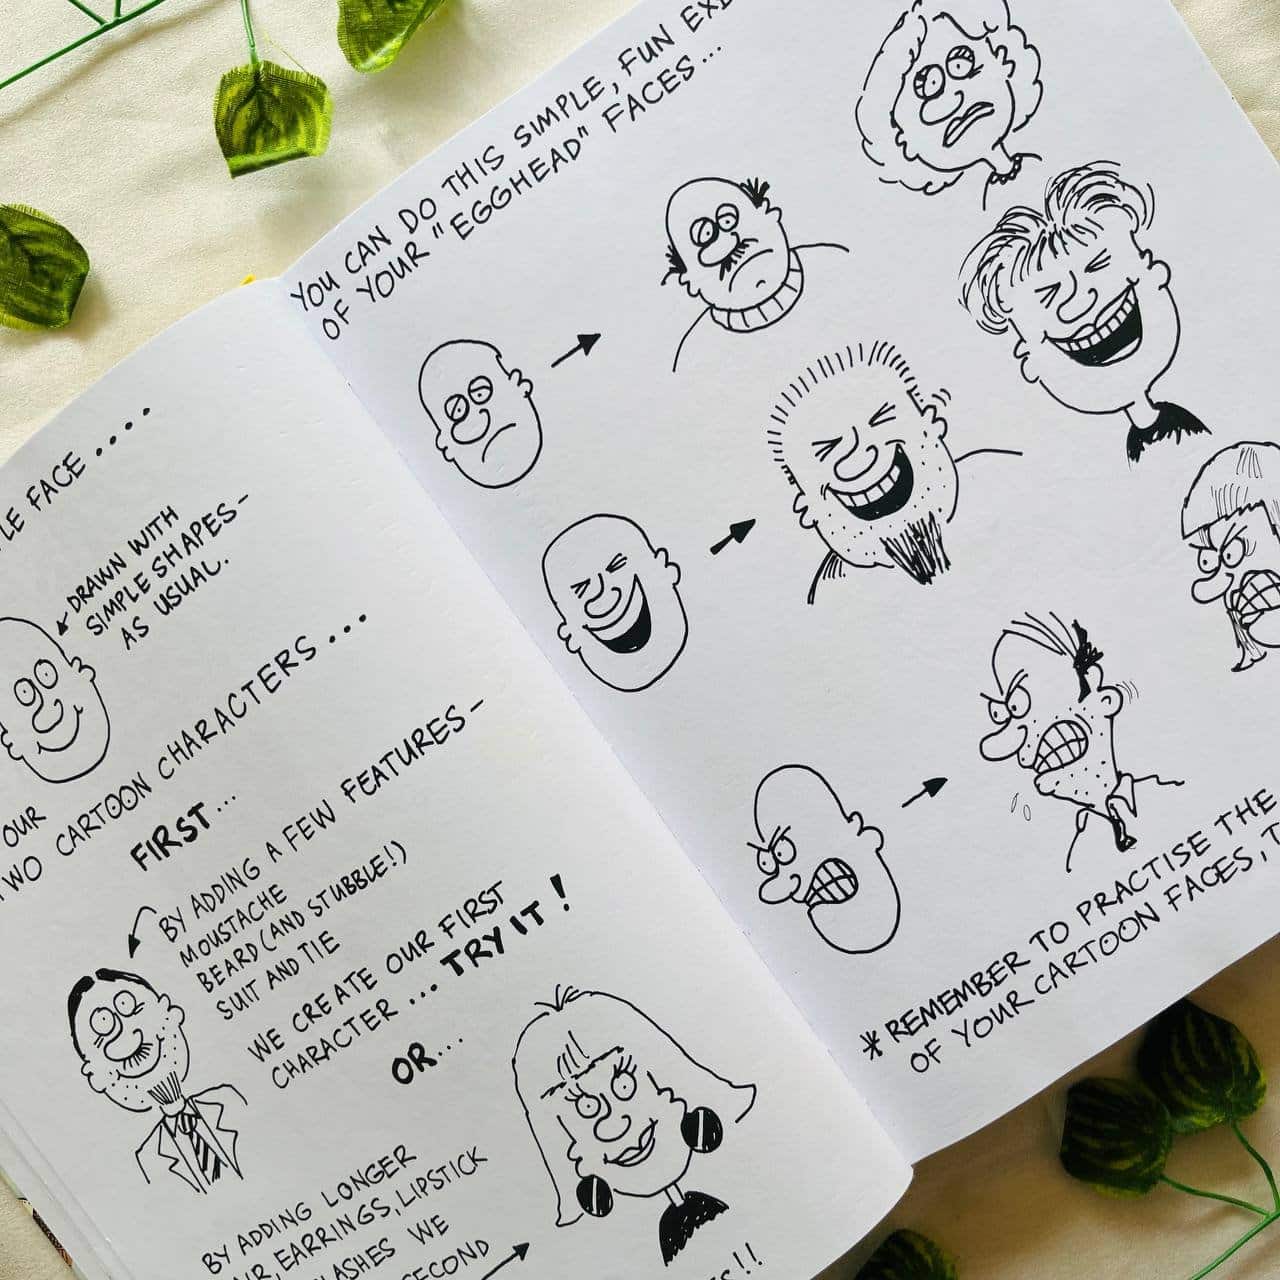 LE FACE....
DRAWN WITH
SIMPLE SHAPES-
AS USUAL.
OUR
TWO CARTOON CHARACTERS...
FIRST...
BY ADDING A FEW FEATURES-
MOUSTACHE
BEARD (AND STUBBLE!)
SUIT AND TIE
WE CREATE OUR FIRST
CHARACTER... TRY IT!
OR...
BY ADDING LONGER
EARRINGS, LIPSTICK
LASHES WE
SECOND
!!
YOU CAN DO THIS SIMPLE, FUN
OF YOUR "EGGHEAD" FACES...
* REMEMBER TO PRACTISE THE
OF YOUR CARTOON FACES,